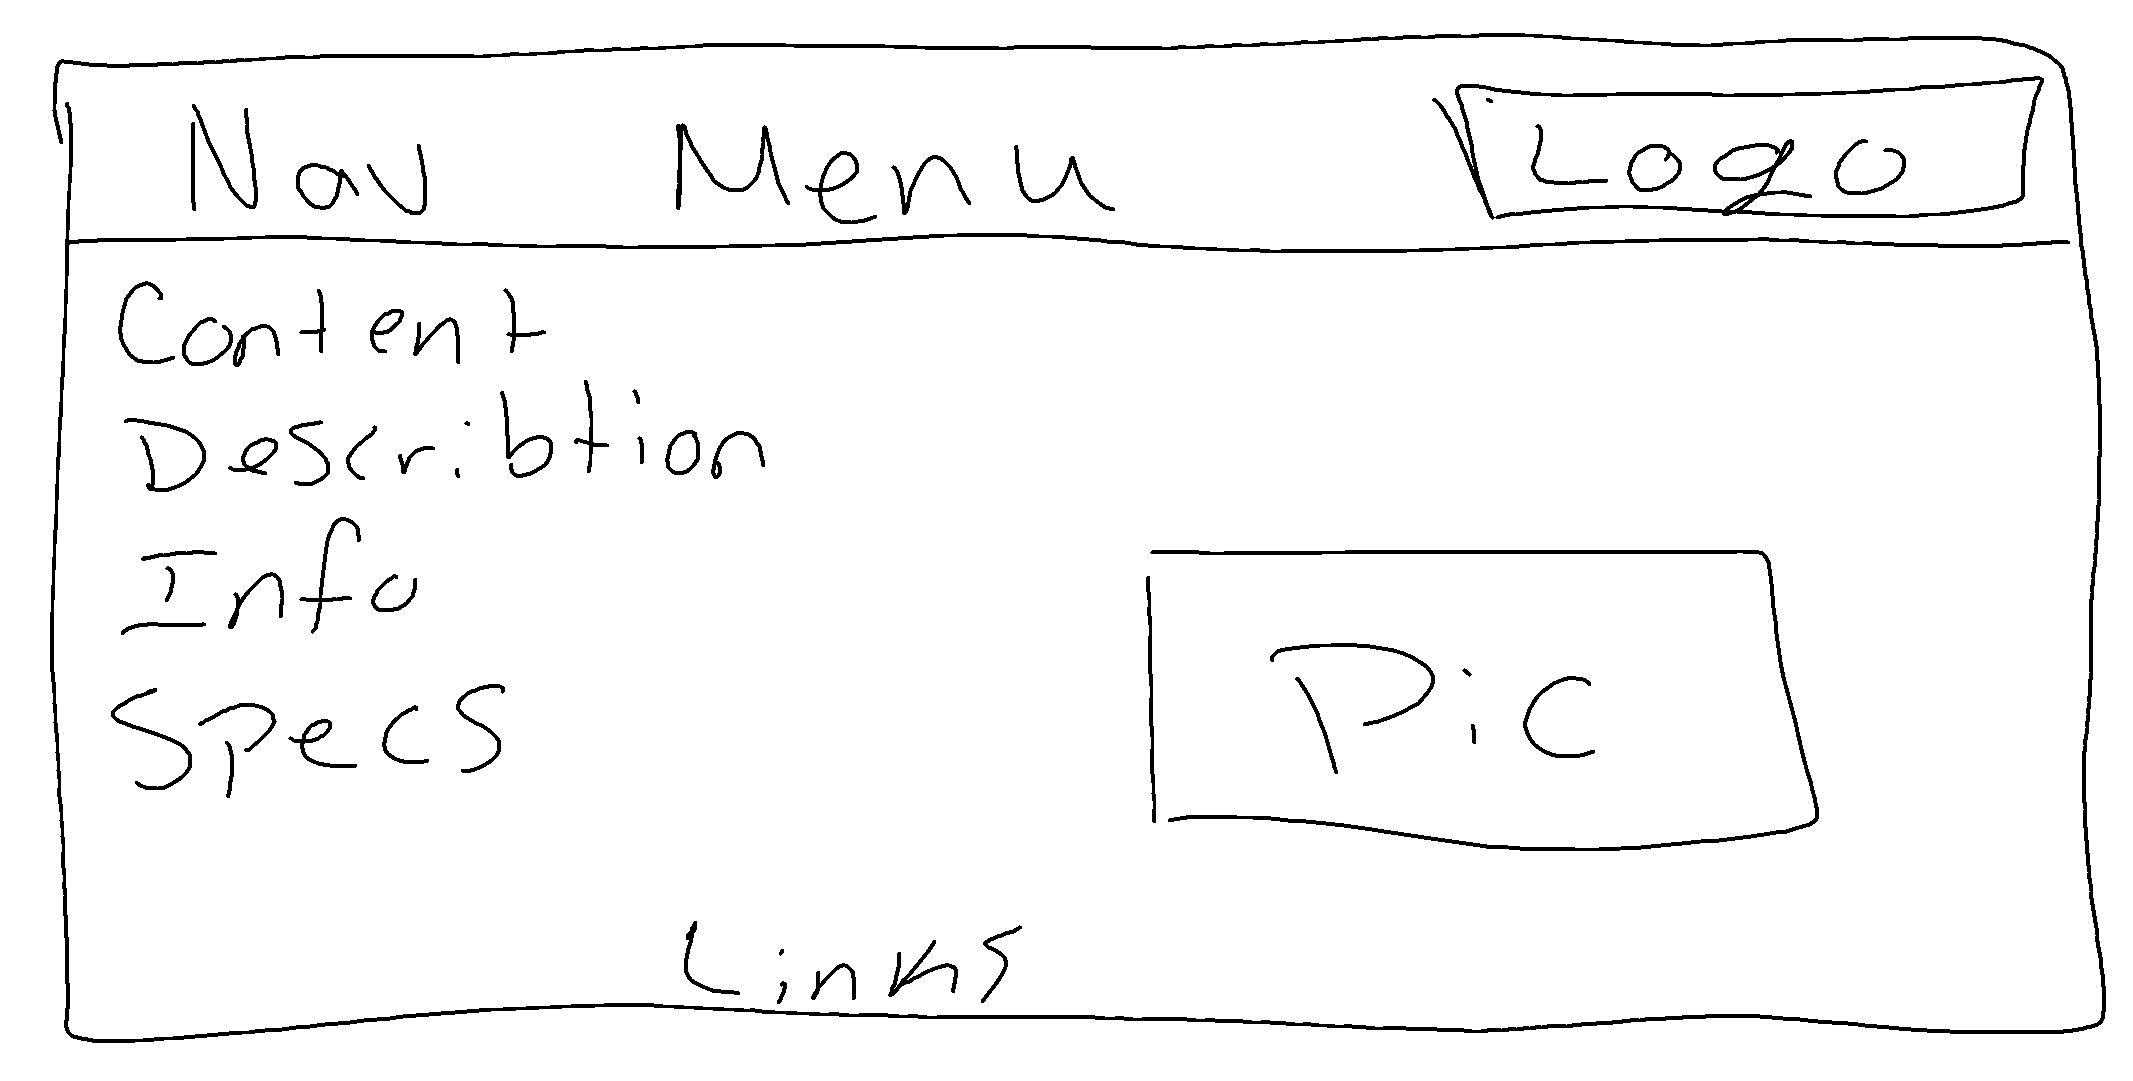 Nav Menu Logo
Content
Describtion
Info
Specs
Pic
Links